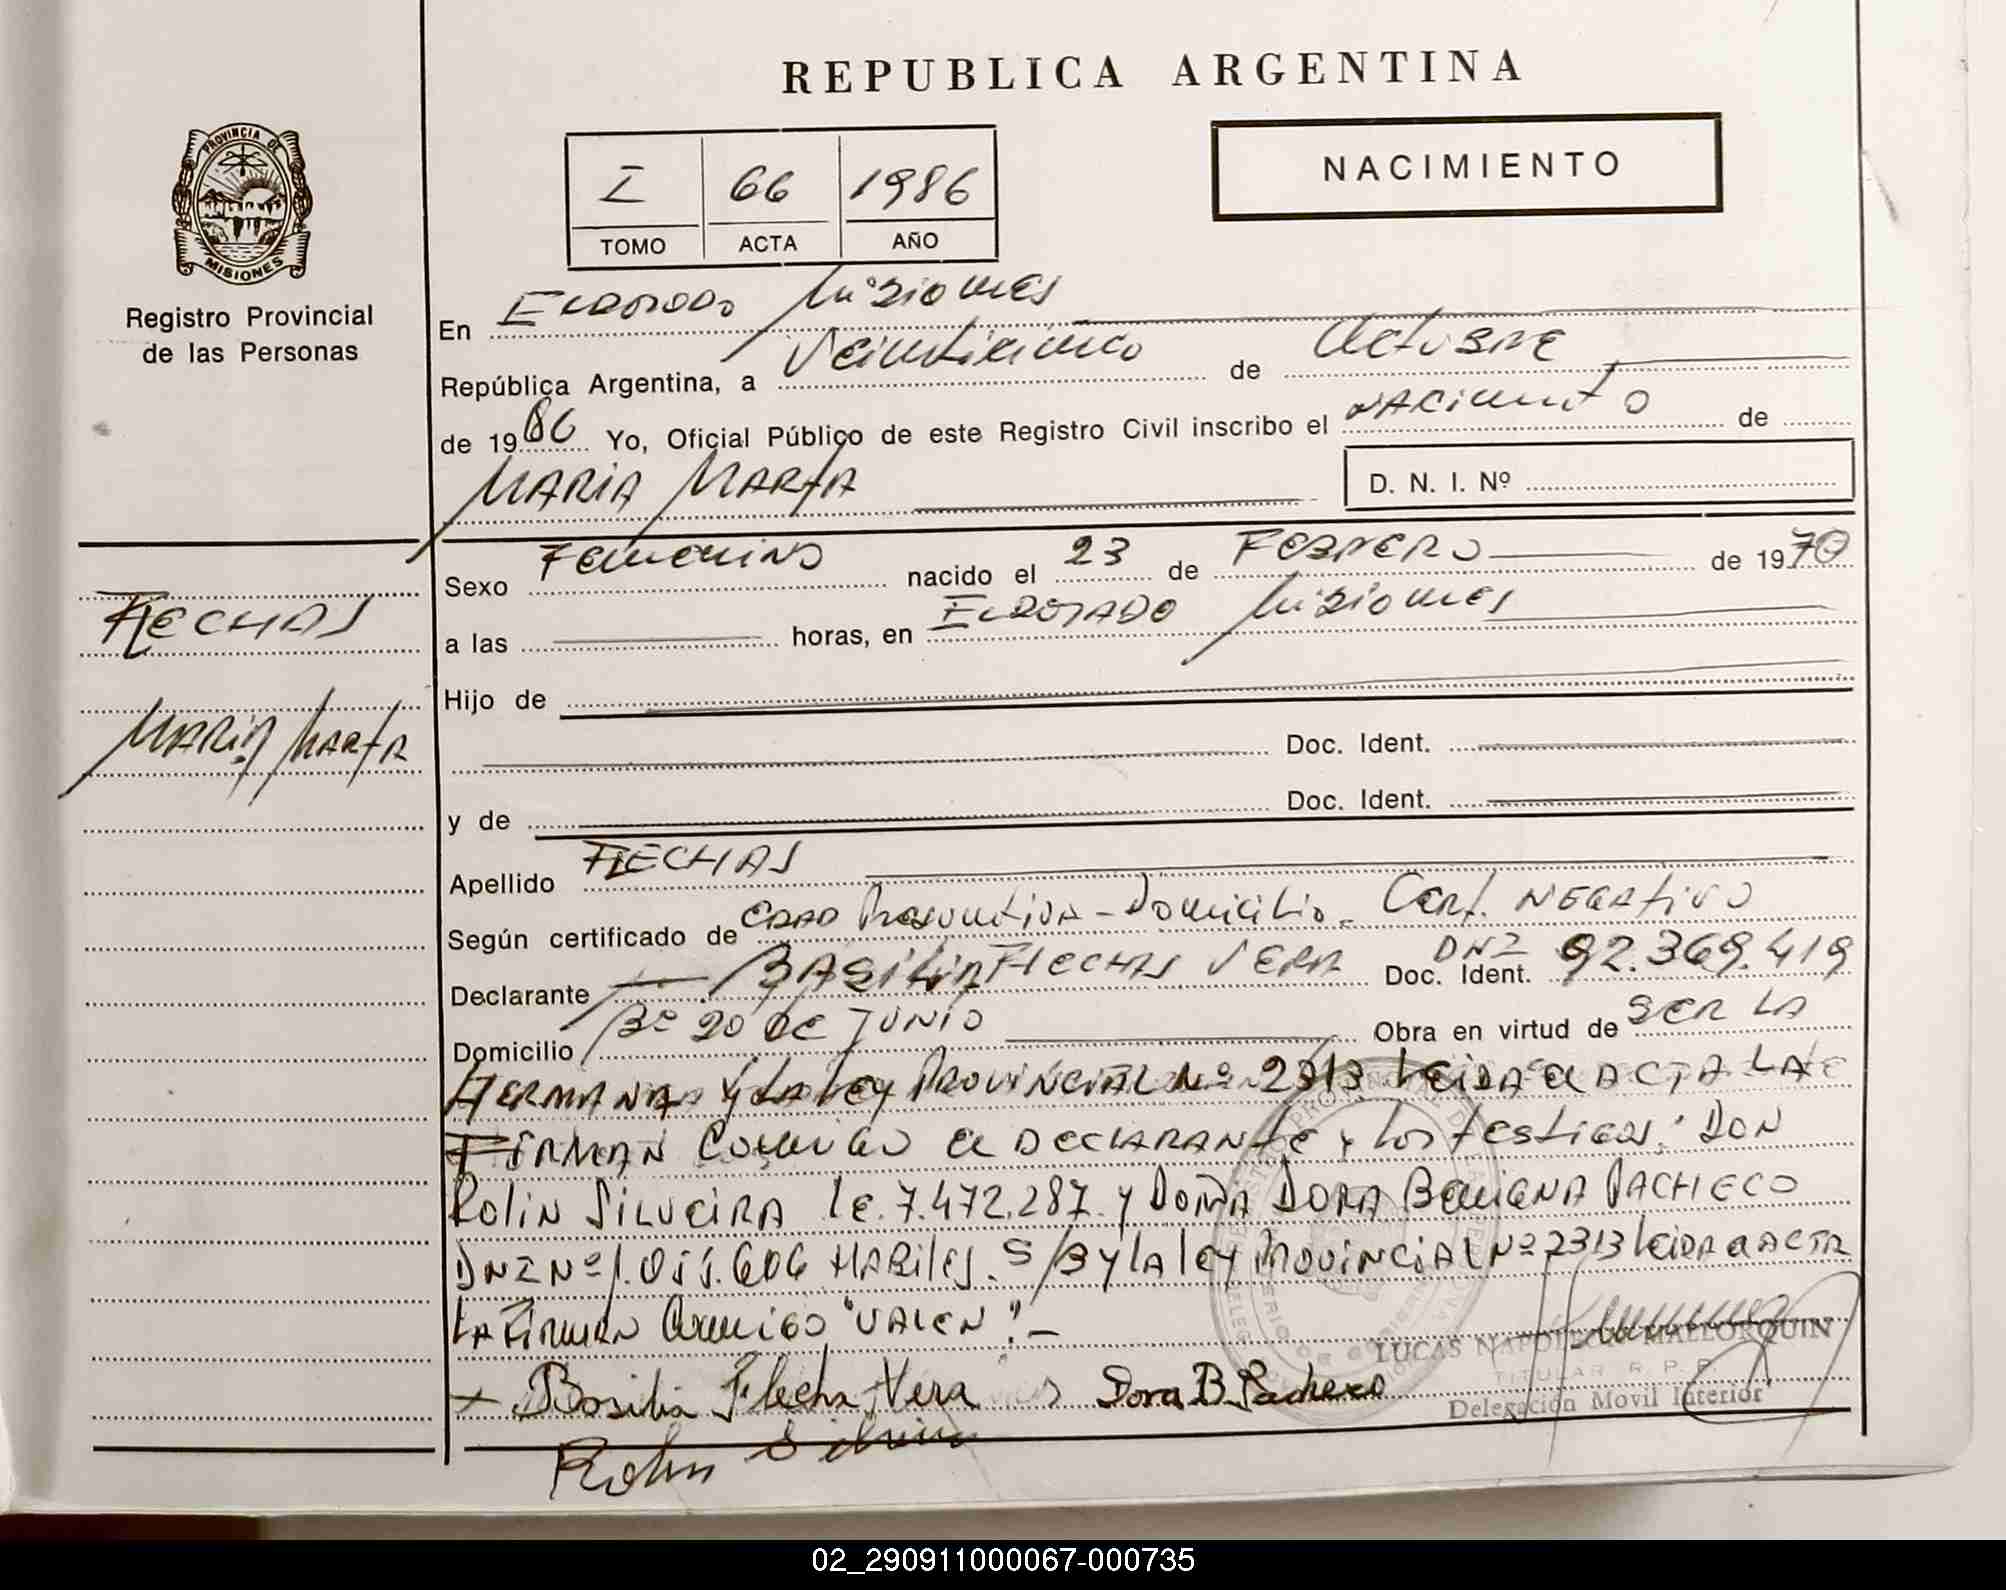 REPUBLICA ARGENTINA
PROVINCIA DE
MISIONES
Registro Provincial
de las Personas
I 66 1986
TOMO ACTA AÑO
NACIMIENTO
En Eldorado Misiones
República Argentina, a Veinticinco de Octubre
de 1986 Yo, Oficial Público de este Registro Civil inscribo el nacimiento de
MARIA MARTA
D. N. I. Nº
Sexo Femenino nacido el 23 de FEBRERO de 1970
a las horas, en ELDORADO Misiones
FLECHAS
MARIA MARTA
Hijo de
Doc. Ident.
y de Doc. Ident.
Apellido FLECHAS
Según certificado de EDAD Presuntiva - Domicilio - Cert. NEGATIVO
Declarante BASILIA FLECHAS VERA Doc. Ident. DNI 92.369.419
Domicilio Bº 20 de JUNIO Obra en virtud de SER LA
HERMANA Y LA LEY PROVINCIAL Nº 2313 LEIDA el ACTA LA
FIRMAN Conmigo el DECLARANTE y los testigos: DON
ROLIN SILVEIRA LE. 7.472.287 y DOÑA DORA Benigna PACHECO
DNI Nº 1.055.606 HABILES. S/B y la ley PROVINCIAL Nº 2313 leida el ACTA
LA FIRMAN Conmigo "VALEN".-
Basilia Flecha Vera Dora B. Pacheco
Rolin Silveira
LUCAS NAPOLEON MALLORQUIN
TITULAR R. P. P.
Delegación Movil Interior
02_290911000067-000735